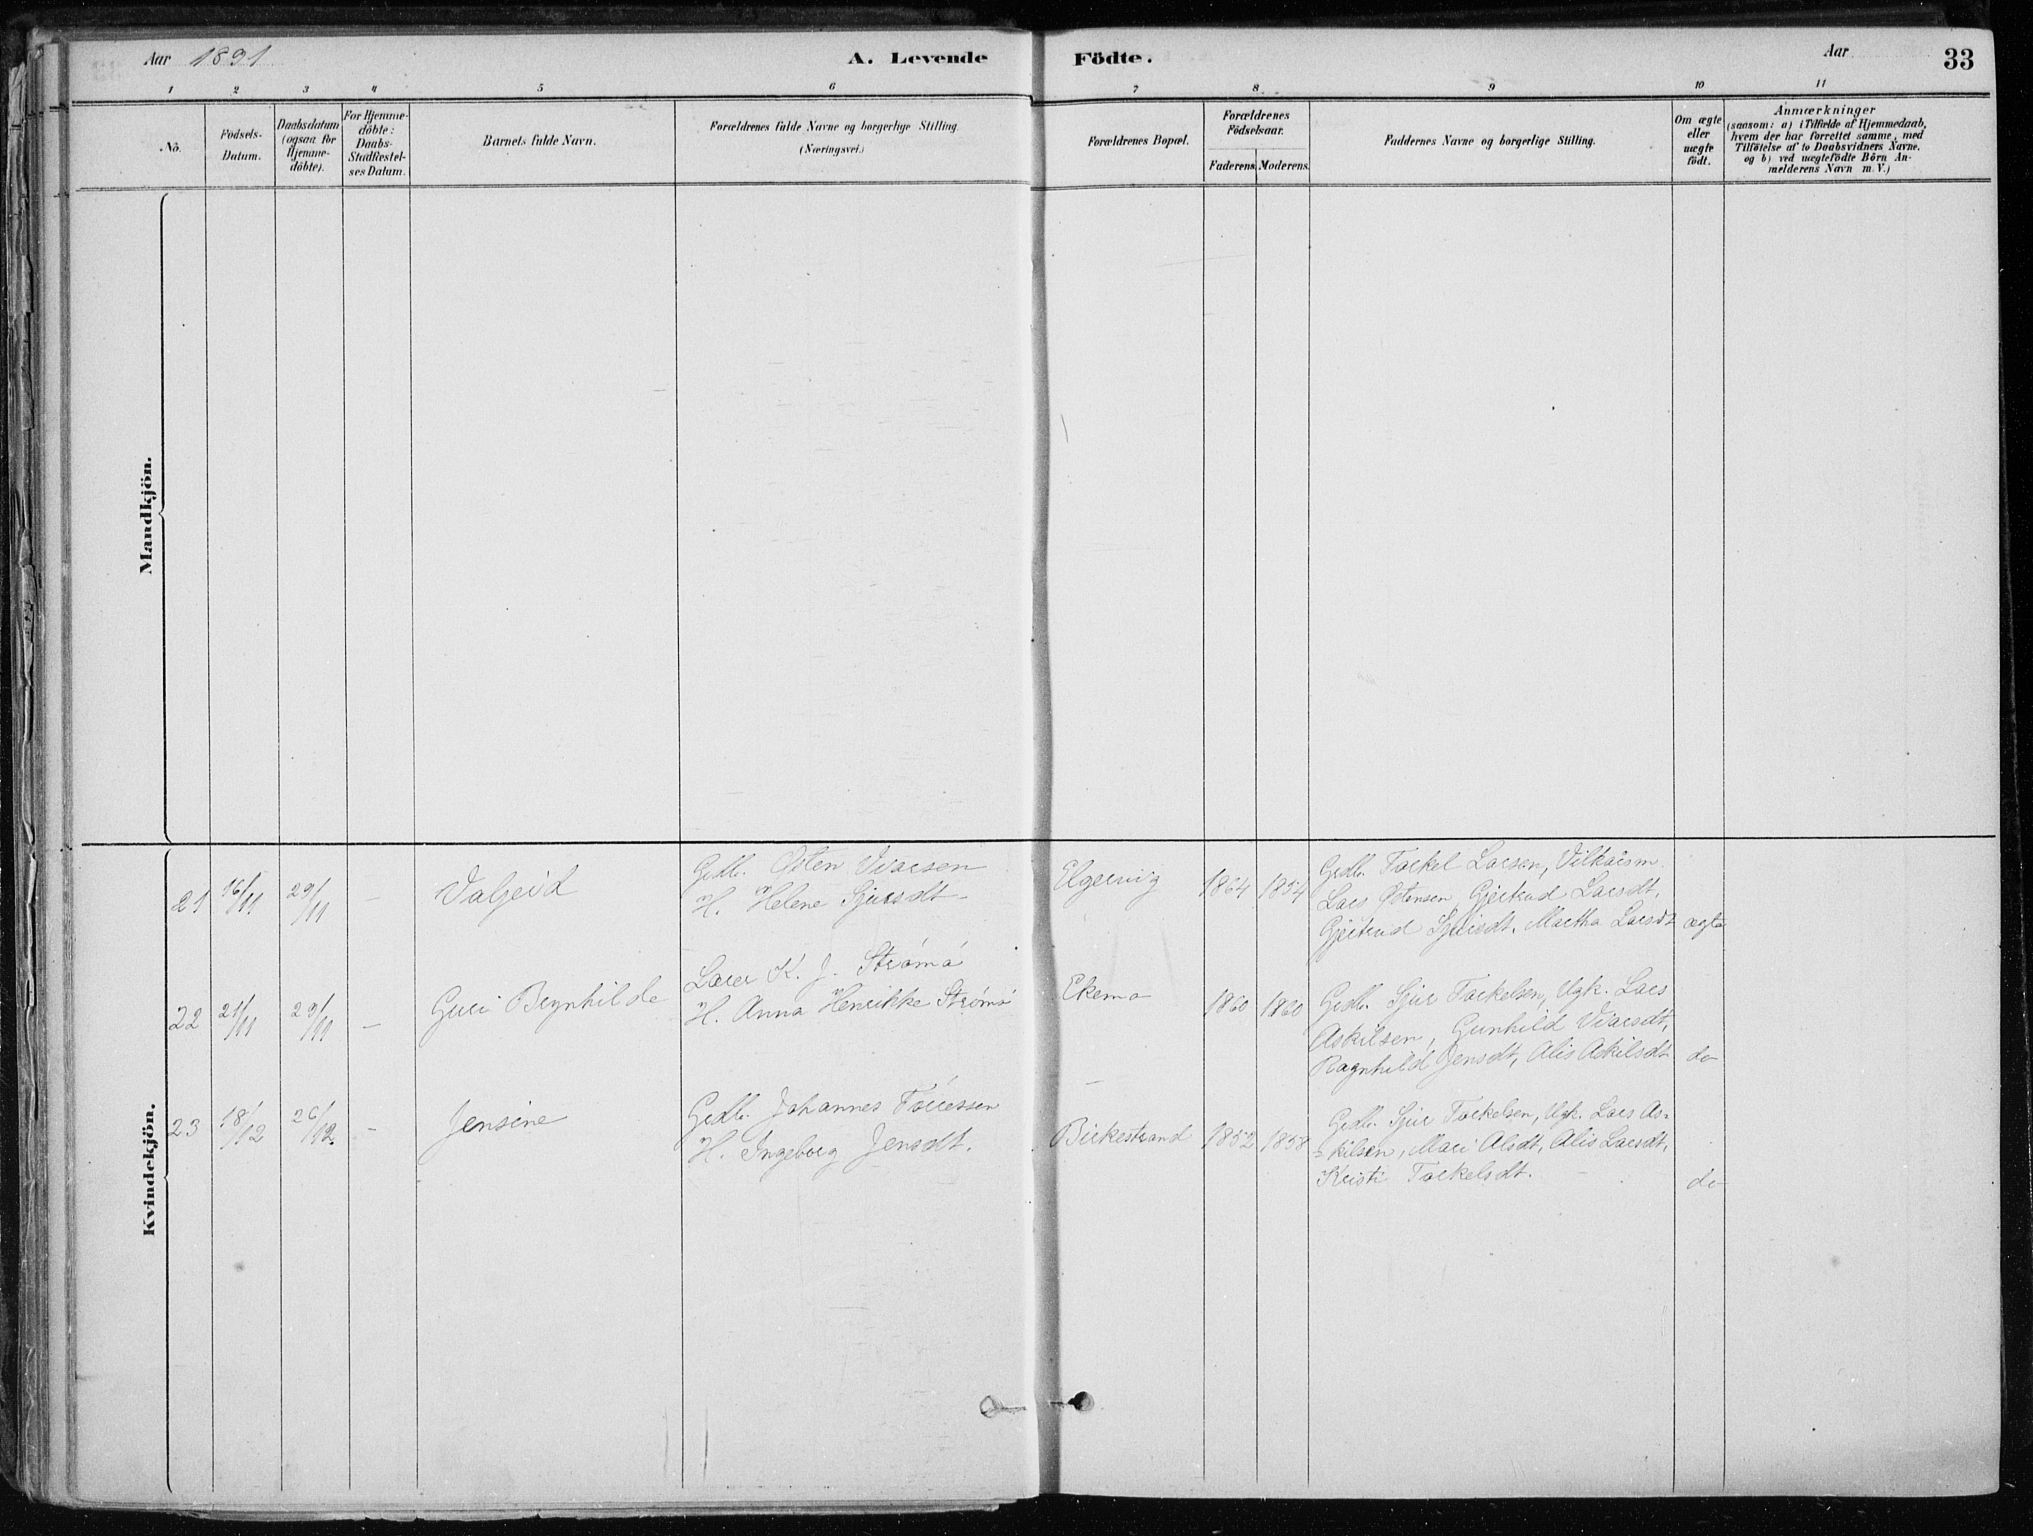 Aar 1891
A. Levende
Födte.
Aar
33
1 2 3 4 5 6 7 8 9 10 11
No.
Födsels-
Datum.
Daabsdatum
(ogsaa for
Hjemme-
döbte).
For Hjemme-
döbte:
Daabs-
Stadfestel-
ses Datum.
Barnets fulde Navn.
Forældrenes fulde Navne og borgerlige Stilling
(Næringsvei.)
Forældrenes Bopæl.
Forældrenes
Födselsaar.
Faderens. Moderens.
Faddernes Navne og borgerlige Stilling.
Om ægte
eller
uægte
födt.
Anmærkninger
(saasom: a) i Tilfælde af Hjemmedaab,
hvem der har forrettet samme, med
Tilföielse af to Daabsvidners Navne.
og b) ved uægtefödte Börn An-
melderens Navn m. V.)
Mandkjön.
Kvindekjön.
21 16/11 29/11 –
Valgerd
Grdbr. Østen Ivarsen
H. Helene Sjursdt
1864 1854
Grdbr. Torkel Larsen,
Lars Østensen, Gjertrud Larsdt,
Gjertrud Sjursdt, Martha Larsdt ægte
22 21/11 29/11 –
Guri Brynhilde
Lærer K. J. Strømø
H. Anna Henrikke Strømø
Ekemo
1860 1860
Grdbr. Sjur Torkelsen, Ugk. Lars
Askilsen, Gunhild Ivarsdt,
Ragnhild Jensdt, Alis Askilsdt do
23 18/12 26/12 –
Jensine
Grdbr. Johannes
H. Ingeborg Jensdt.
Birkestrand
1852 1858
Grdbr. Sjur Torkelsen, Ugk. Lars As-
kilsen, Mari Alsdt, Alis Larsdt,
Kristi Torkelsdt.
do